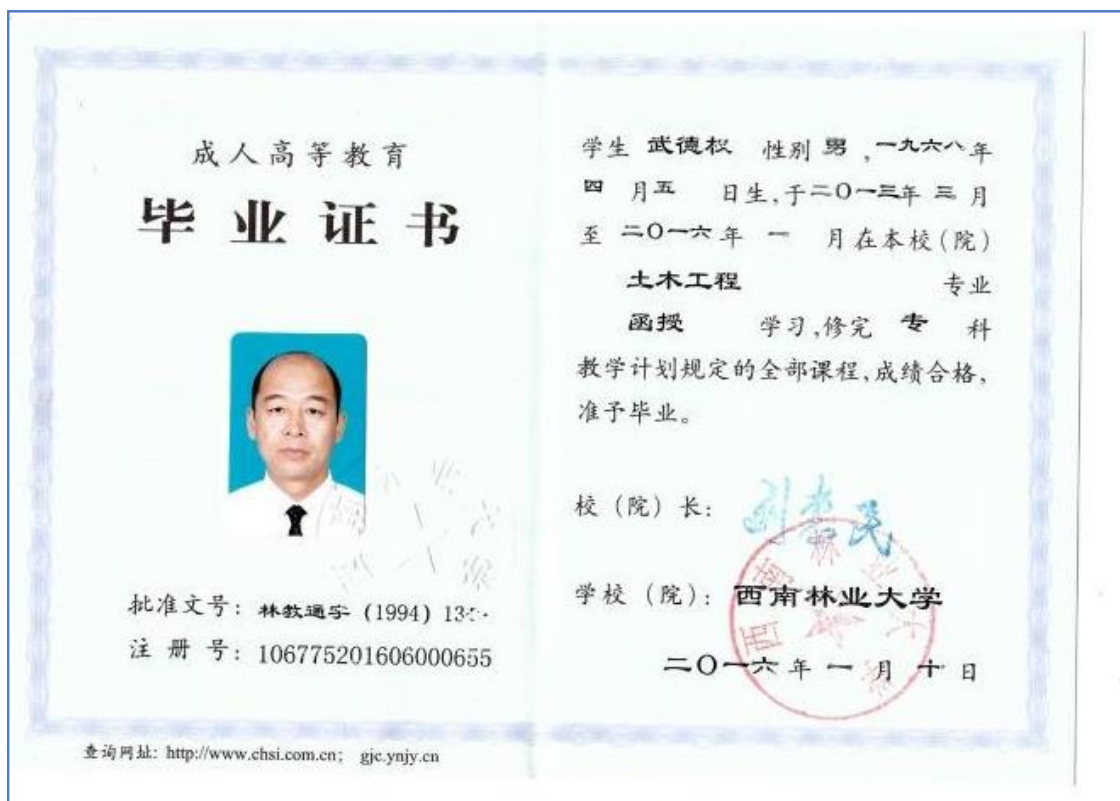 成人高等教育
毕业证书
批准文号: 林教通字 (1994) 13
注册号: 106775201606000655
查询网址: http://www.chsi.com.cn; gjc.ynjy.cn
学生 武德权 性别 男 ,一九六八年
四 月五 日生,于二〇一三年 三 月
至 二〇一六年 一 月在本校(院)
土木工程 专业
函授 学习,修完 专 科
教学计划规定的全部课程,成绩合格,
准予毕业。
校 (院) 长:
学校 (院): 西南林业大学
西南林业大学
二〇一六年 一 月 十 日